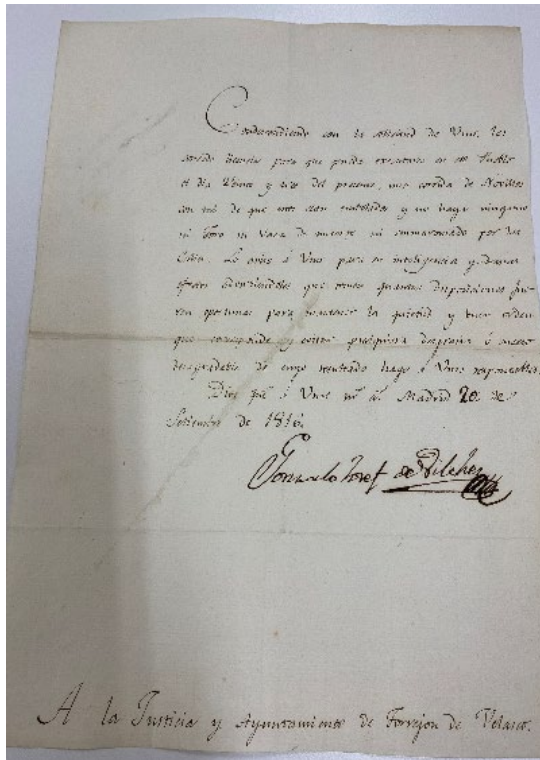 Condescendiendo con la solicitud de Vms. les
concedo licencia para que pueda executarse en ese Pueblo
el dia Veinte y uno del presente, una corrida de Novillos
con tal de que estos sean embolados y no haya ninguno
ni Toro ni Vaca de muerte, ni enmaromado por las
Calles. Lo aviso á Vms para su inteligencia y demas
efectos que tomen quantas disposiciones fue-
ren oportunas para mantener la quietud y buen orden
que corresponde y evitar qualquiera desgracia ó suceso
desagradable de cuyo resultado hago á Vms responsables.
Dios gue á Vms ms as. Madrid 20 de
Setiembre de 1816.
Gonzalo Josef de Vilches
A la Justicia y Ayuntamiento de Torrejon de Velasco.